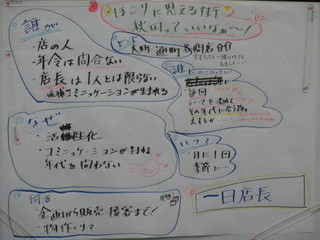 ほこりに思える街
秋田っていいなぁ〜!
誰が
・店の人
・年令は問わない
・店長は1人とは限らない
コミュニケーションが生まれる
どこで
通町
誰に
毎回
テーマを決めて
その年代に合う物を
なぜ
・活性化
・コミュニケーションが生まれ
年代を問わない
いつ?
・月に1回
・季節に一
何を
・企画から販売 接客まで!
・物作り?
一日店長